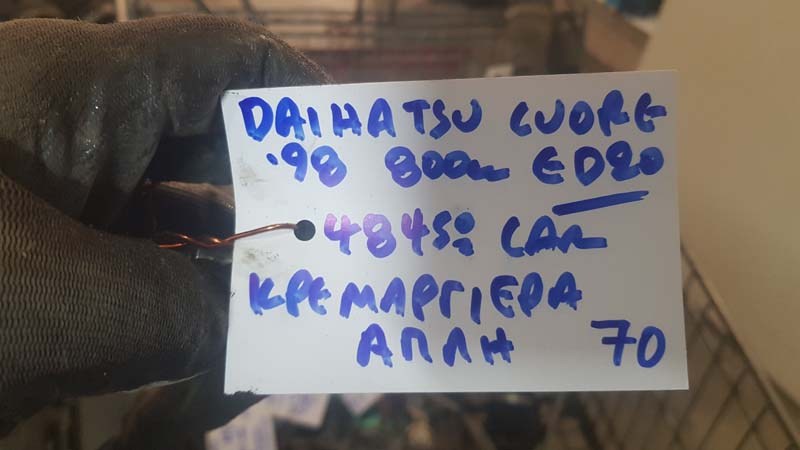 DAIHATSU CUORE
'98 800cc ED20
CAR
ΚΡΕΜΑΡΓΙΕΡΑ
ΑΠΛΗ 70